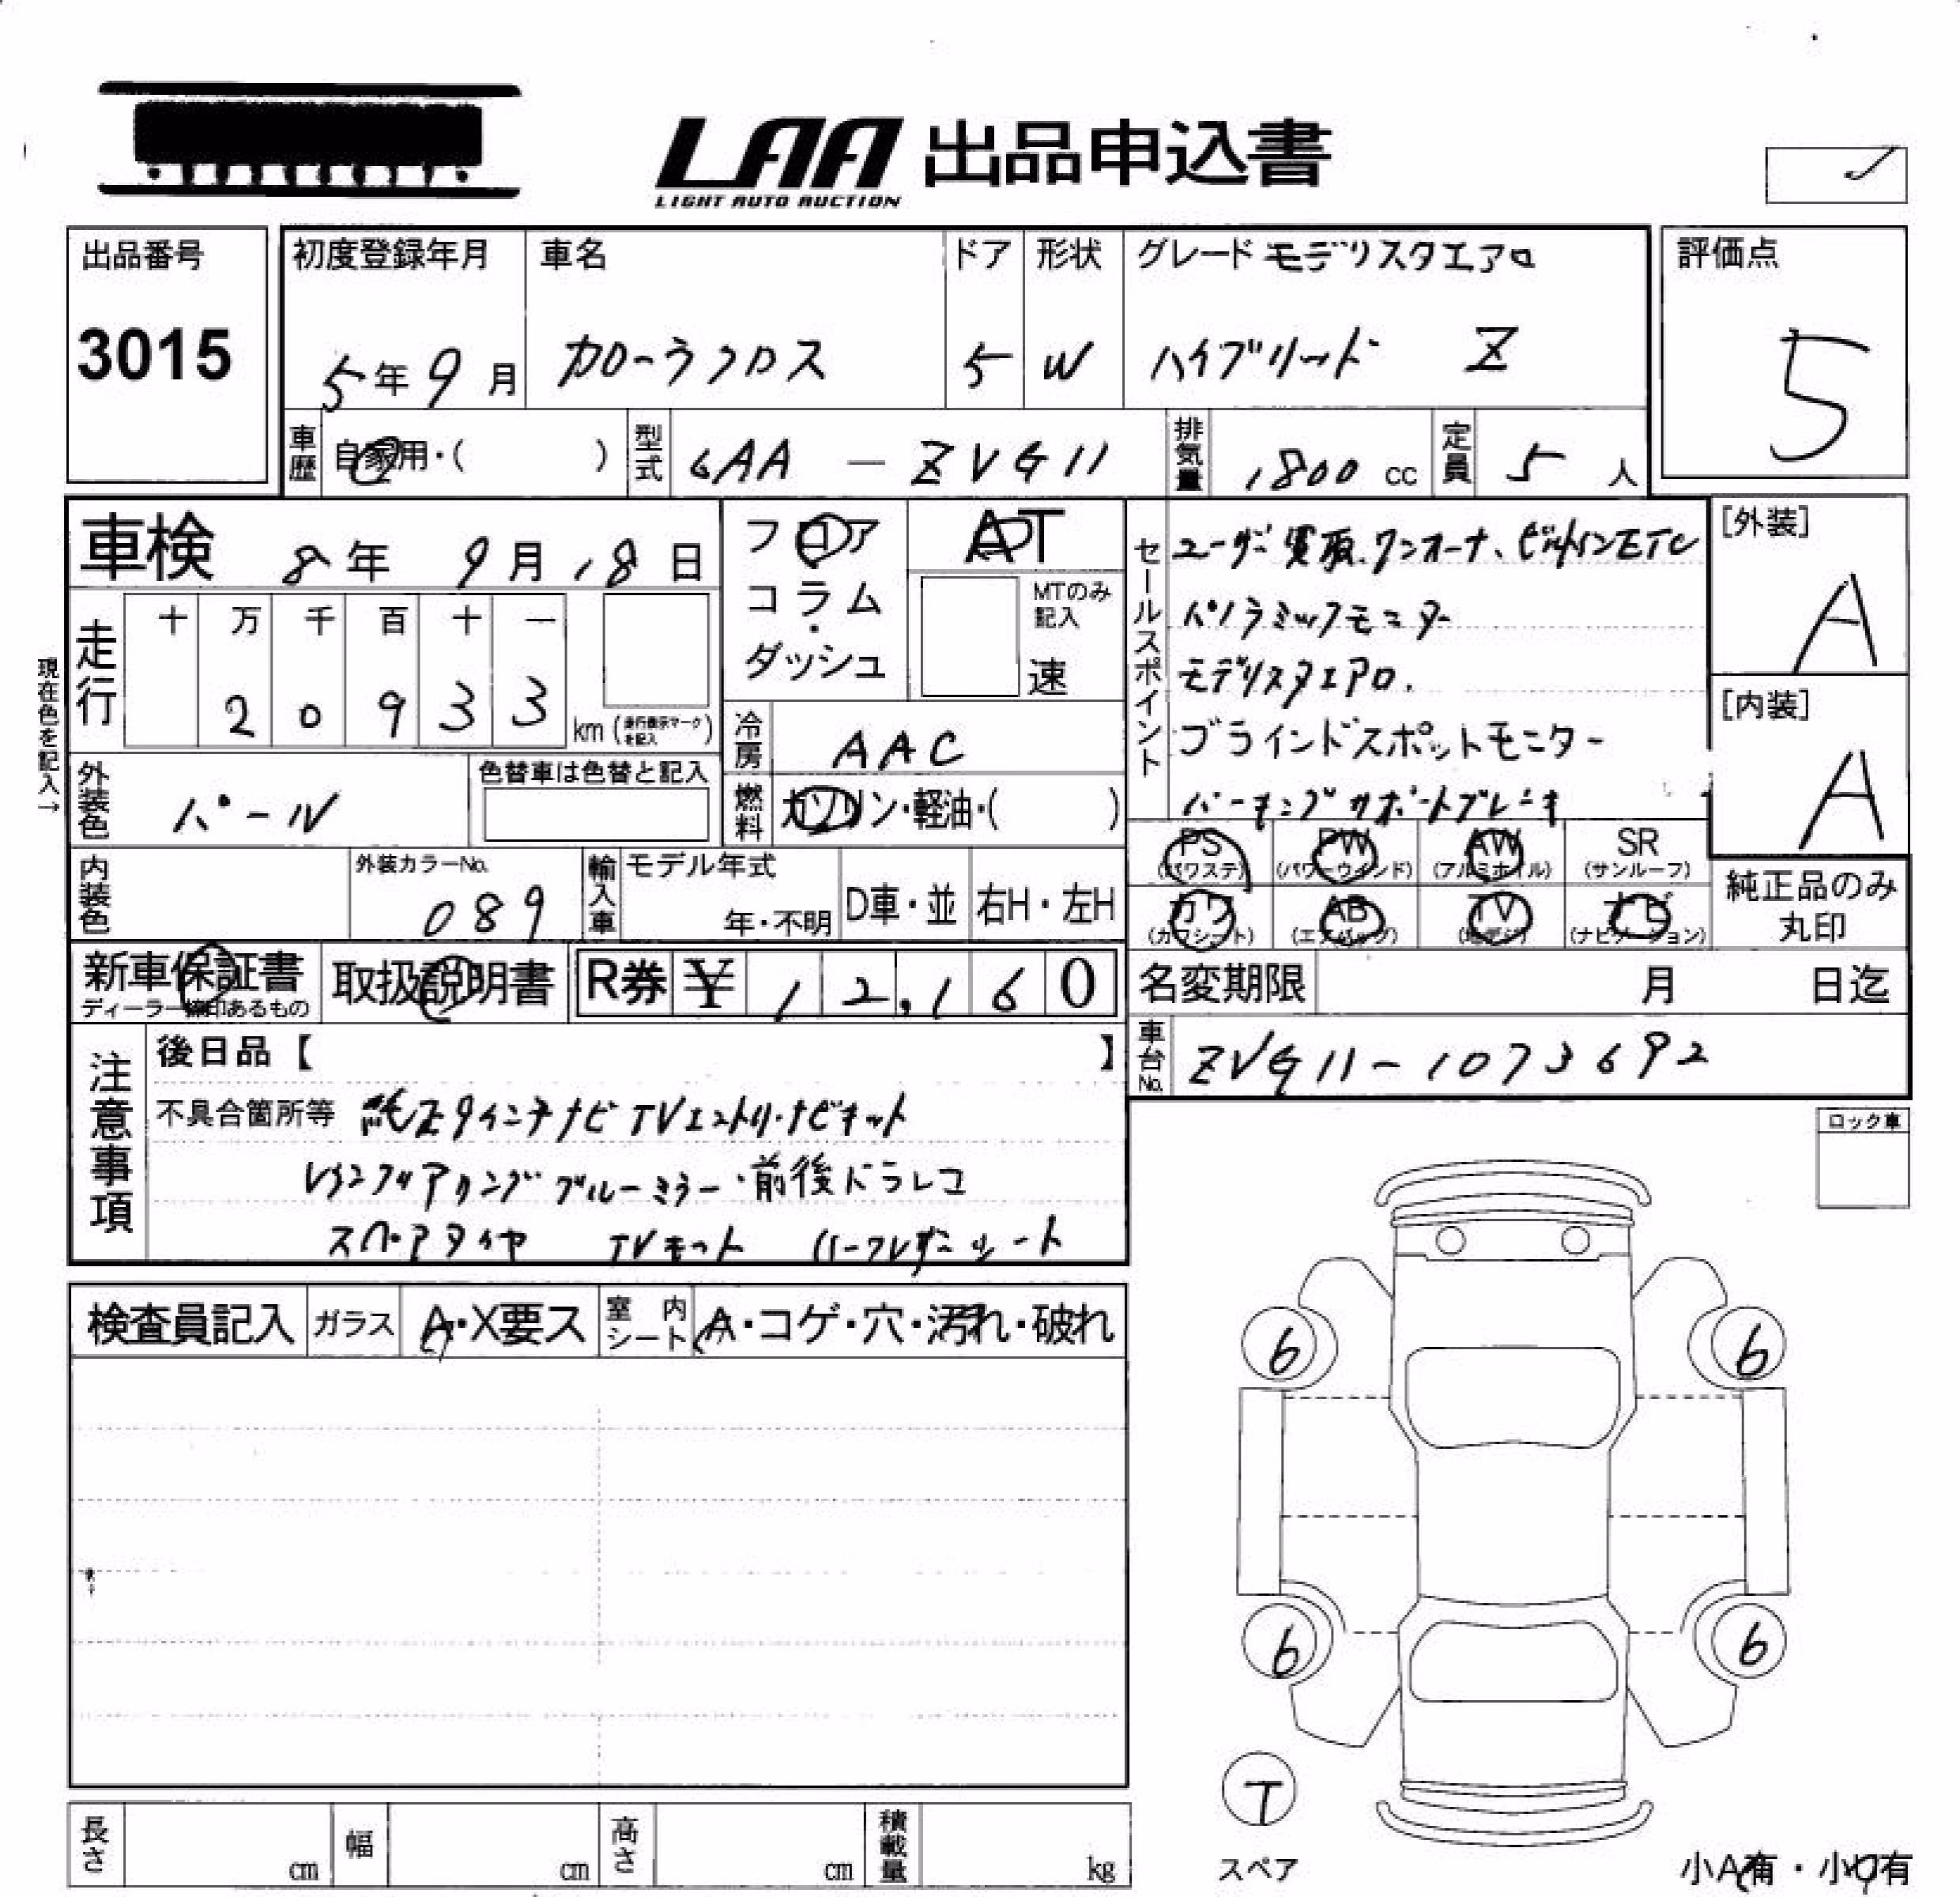 LAA 出品申込書
LIGHT AUTO AUCTION
出品番号
3015
初度登録年月
5年9月
車名
カローラクロス
ドア
5
形状
W
グレード モデリスタエアロ
ハイブリッド Z
評価点
5
車歴 自家用・( )
型式 6AA - ZVG11
排気量 1800 cc
定員 5 人
車検 8年 9月 18日
フロア
コラム
・
ダッシュ
AT
MTのみ
記入
速
セールスポイント
ユーザー買取、ワンオーナ、ビルトインETC
パノラミックモニター
モデリスタエアロ.
ブラインドスポットモニター
パーキングサポートブレーキ
[外装]
A
[内装]
A
現在色を記入→
走行
十 万 千 百 十 一
2 0 9 3 3 km (走行表示マークを記入)
冷房 AAC
外装色 パール
色替車は色替と記入
燃料 ガソリン・軽油・( )
PS PW AW SR
(パワステ) (パワーウインド) (アルミホイル) (サンルーフ)
カワ AB TV ナビ
(カワシート) (エアバッグ) (地デジ) (ナビゲーション)
純正品のみ
丸印
内装色
外装カラーNo.
089
輸入車
モデル年式
年・不明
D車・並
右H・左H
新車保証書
ディーラー締印あるもの
取扱説明書
R券 ¥ 12,160
名変期限 月 日迄
車台No. ZVG11-1073692
注意事項
後日品【 】
不具合箇所等 純正9インチナビ TVエントリ・ナビキット
ブルーミラー・前後ドラレコ
スペアタイヤ TVキット ハーフレザーシート
ロック車
検査員記入
ガラス A・X要ス
室内シート A・コゲ・穴・汚れ・破れ
6 6
6 6
T
スペア
長さ cm
幅 cm
高さ cm
積載量 kg
小A有・小U有